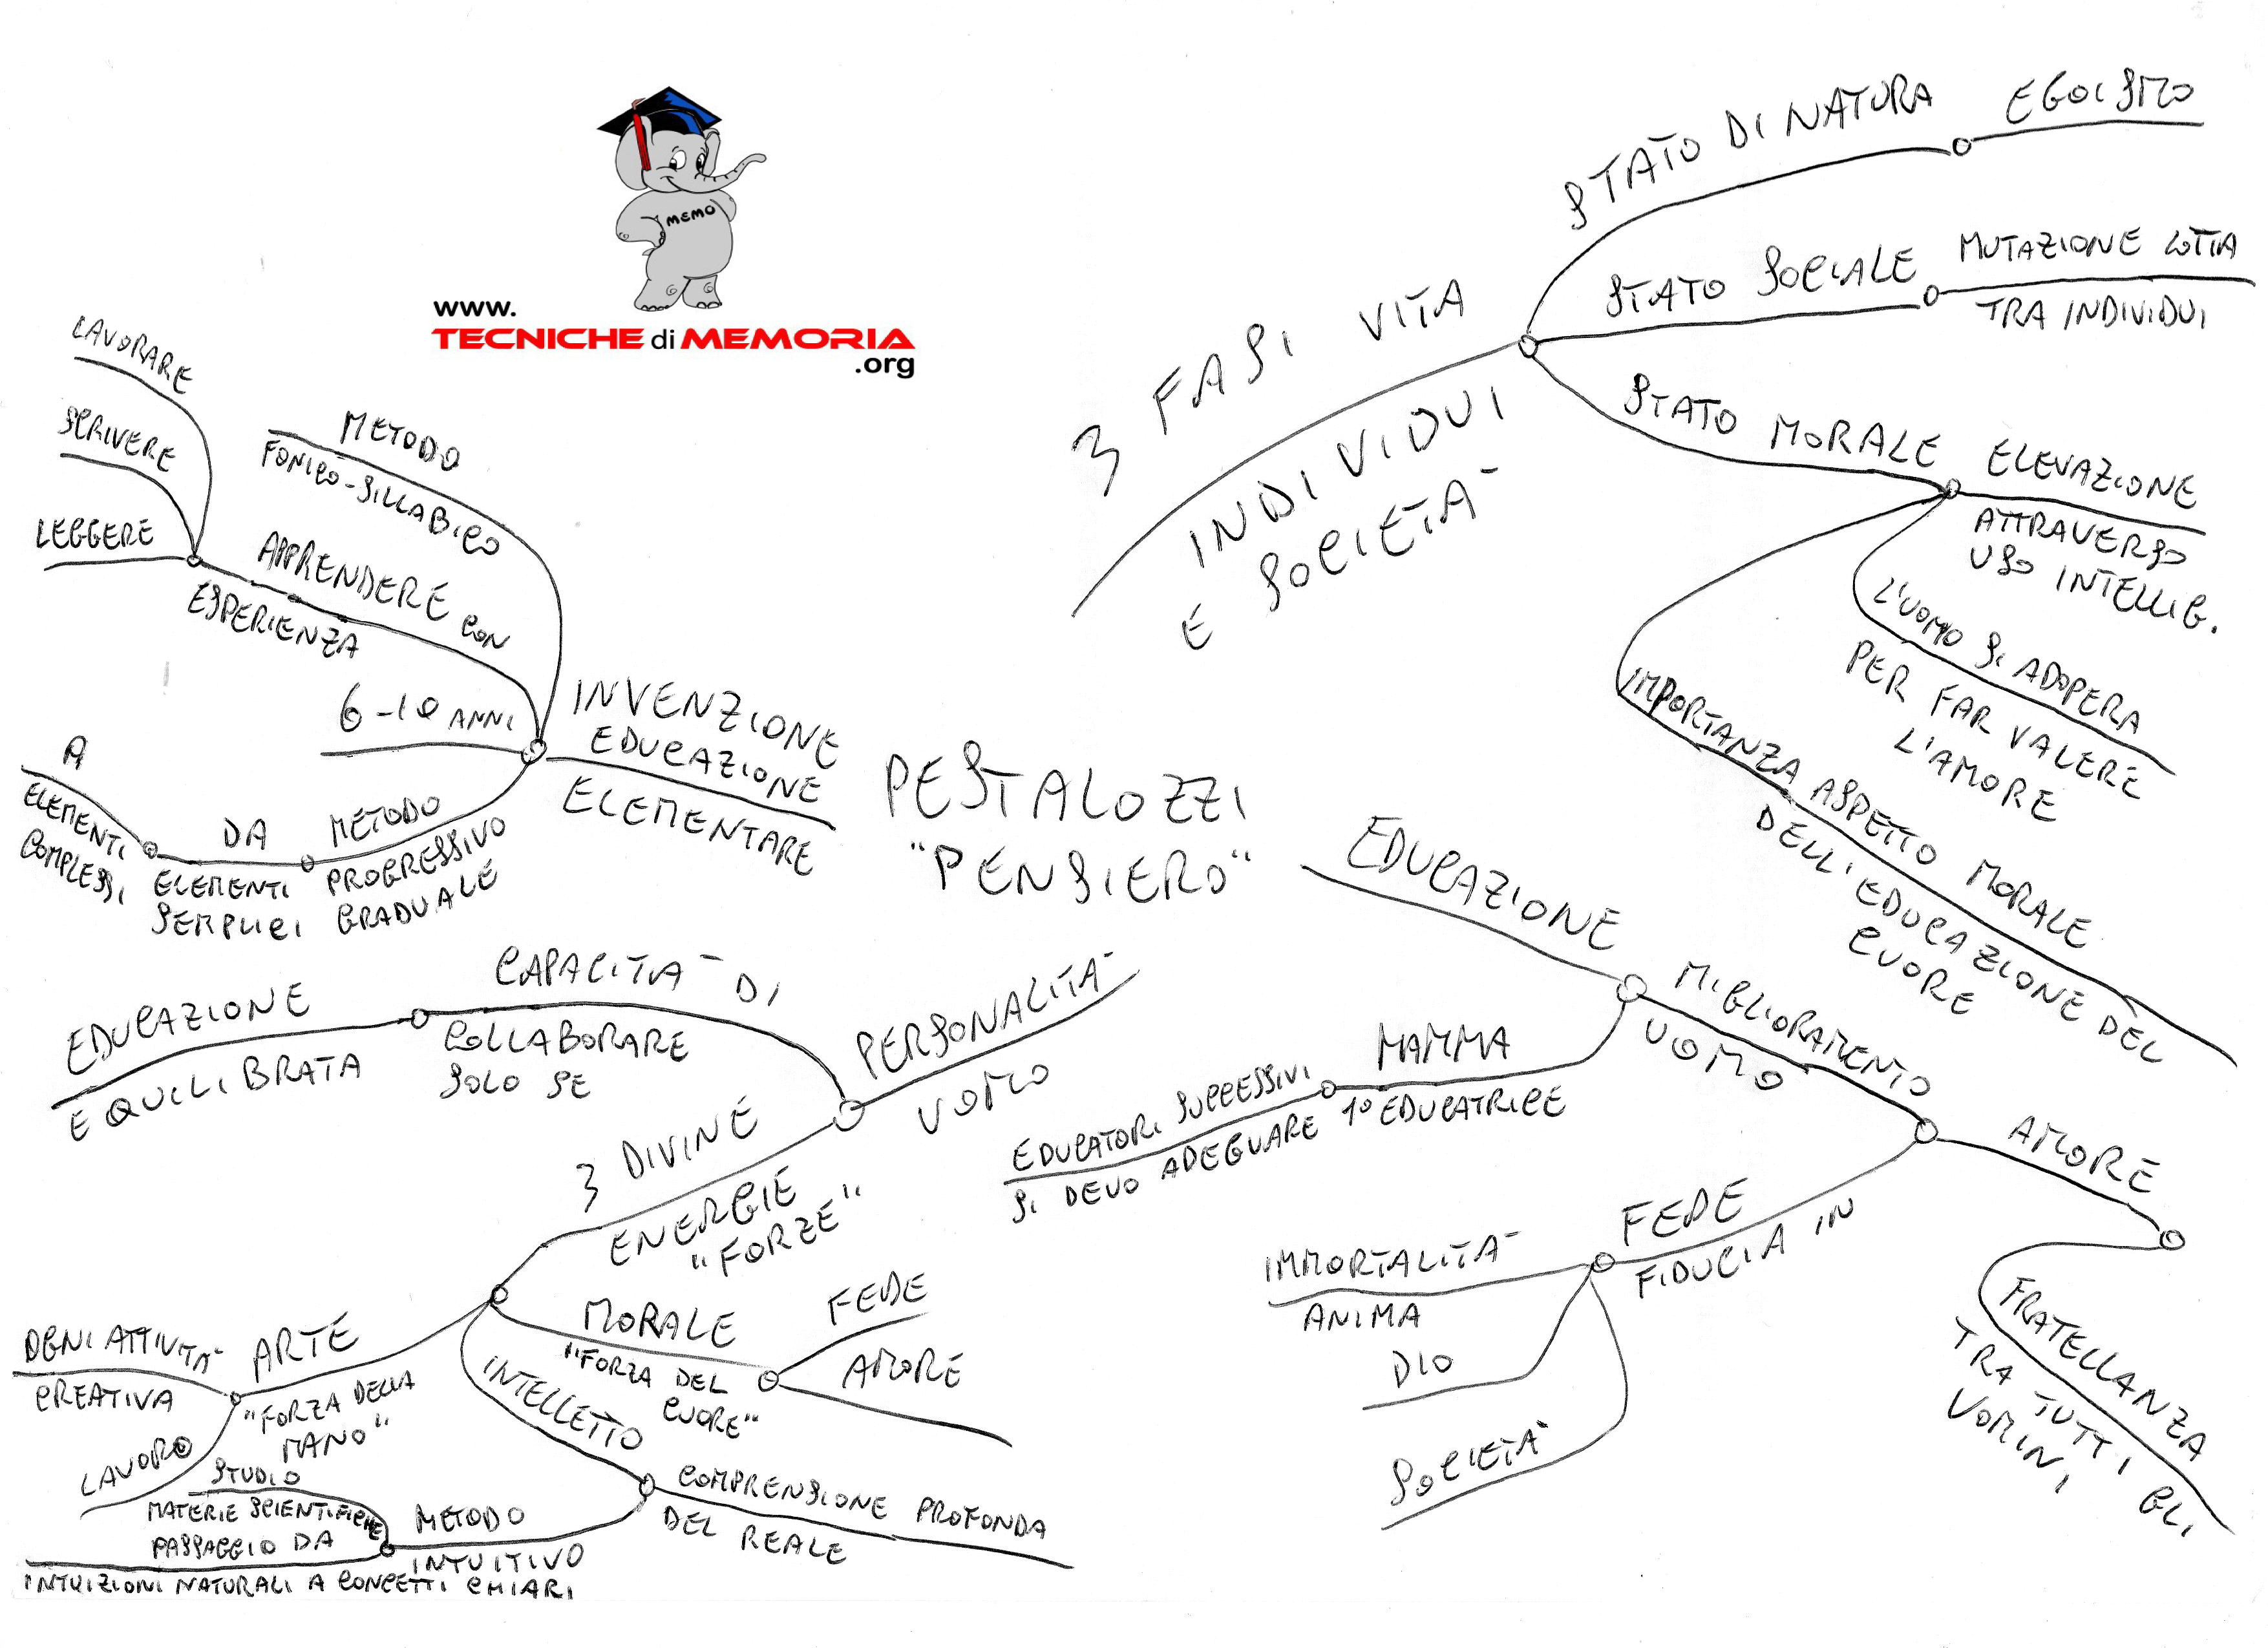 MEMO
www.
TECNICHE di MEMORIA
.org
PESTALOZZI
"PENSIERO"
3 FASI VITA
INDIVIDUI
E SOCIETA'
STATO DI NATURA
EGOISMO
STATO SOCIALE
MUTAZIONE LOTTA
TRA INDIVIDUI
STATO MORALE
ELEVAZIONE
ATTRAVERSO
USO INTELLIG.
L'UOMO SI ADOPERA
PER FAR VALERE
L'AMORE
IMPORTANZA ASPETTO MORALE
DELL'EDUCAZIONE DEL
CUORE
EDUCAZIONE
MIGLIORAMENTO
UOMO
MAMMA
1° EDUCATRICE
EDUCATORI SUCCESSIVI
SI DEVO ADEGUARE
AMORE
FRATELLANZA
TRA TUTTI GLI
UOMINI
FEDE
FIDUCIA IN
IMMORTALITA'
ANIMA
DIO
SOCIETA'
PERSONALITA'
UOMO
CAPACITA' DI
COLLABORARE
SOLO SE
EDUCAZIONE
EQUILIBRATA
3 DIVINE
ENERGIE
"FORZE"
MORALE
"FORZA DEL
CUORE"
FEDE
AMORE
INTELLETTO
COMPRENSIONE PROFONDA
DEL REALE
METODO
INTUITIVO
STUDIO
MATERIE SCIENTIFICHE
PASSAGGIO DA
INTUIZIONI NATURALI A CONCETTI CHIARI
ARTE
"FORZA DELLA
MANO"
OGNI ATTIVITA'
CREATIVA
LAVORO
INVENZIONE
EDUCAZIONE
ELEMENTARE
METODO
FONICO-SILLABICO
APPRENDERE CON
ESPERIENZA
LAVORARE
SCRIVERE
LEGGERE
6-10 ANNI
METODO
PROGRESSIVO
GRADUALE
DA
ELEMENTI
SEMPLICI
A
ELEMENTI
COMPLESSI